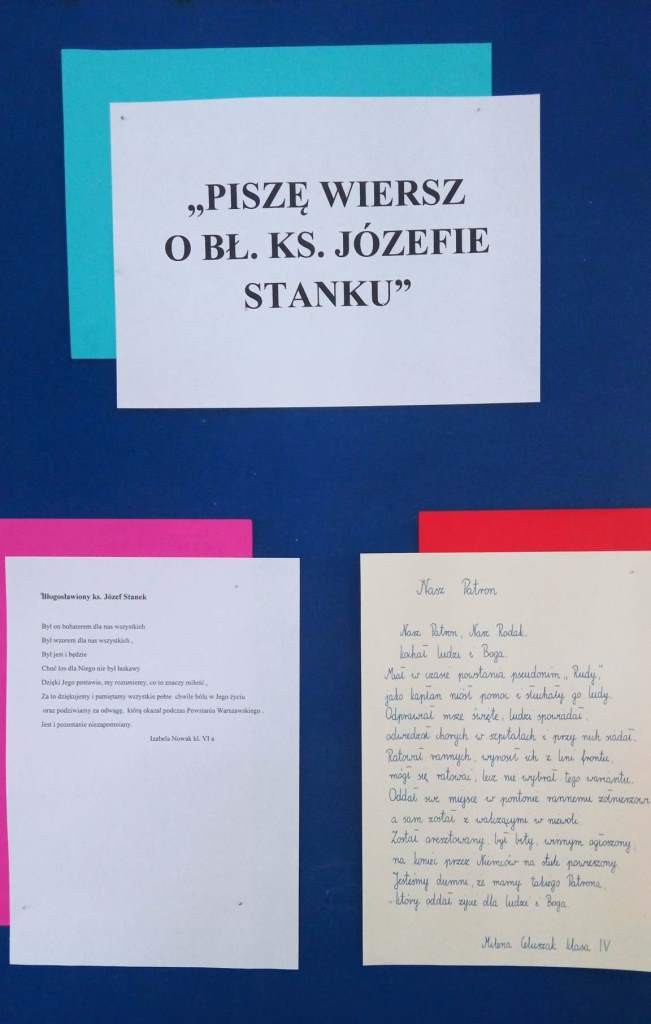 „PISZĘ WIERSZ
O BŁ. KS. JÓZEFIE
STANKU”
Błogosławiony ks. Józef Stanek
Był on bohaterem dla nas wszystkich
Był wzorem dla nas wszystkich ,
Był jest i będzie
Choć los dla Niego nie był łaskawy
Dzięki Jego postawie, my rozumiemy, co to znaczy miłość ,
Za to dziękujemy i pamiętamy wszystkie pełne chwile bólu w Jego życiu
oraz podziwiamy za odwagę, którą okazał podczas Powstania Warszawskiego .
Jest i pozostanie niezapomniany.
Izabela Nowak kl. VI a
Nasz Patron
Nasz Patron, Nasz Rodak
kochał ludzi i Boga.
Miał w czasie powstania pseudonim „Rudy,”
jako kapłan niósł pomoc i słuchały go ludy.
Odprawiał msze święte, ludzi spowiadał,
odwiedzał chorych w szpitalach i przy nich siadał.
Ratował rannych, wynosił ich z linii frontu,
mógł się ratować, lecz nie wybrał tego wariantu.
Oddał swe miejsce w pontonie rannemu żołnierzowi
a sam został z walczącymi w niewole.
Został aresztowany, był bity, winnym ogłoszony,
na koniec przez Niemców na stule powieszony.
Jesteśmy dumni, że mamy takiego Patrona,
który oddał życie dla ludzi i Boga.
Milena Celuszak klasa IV